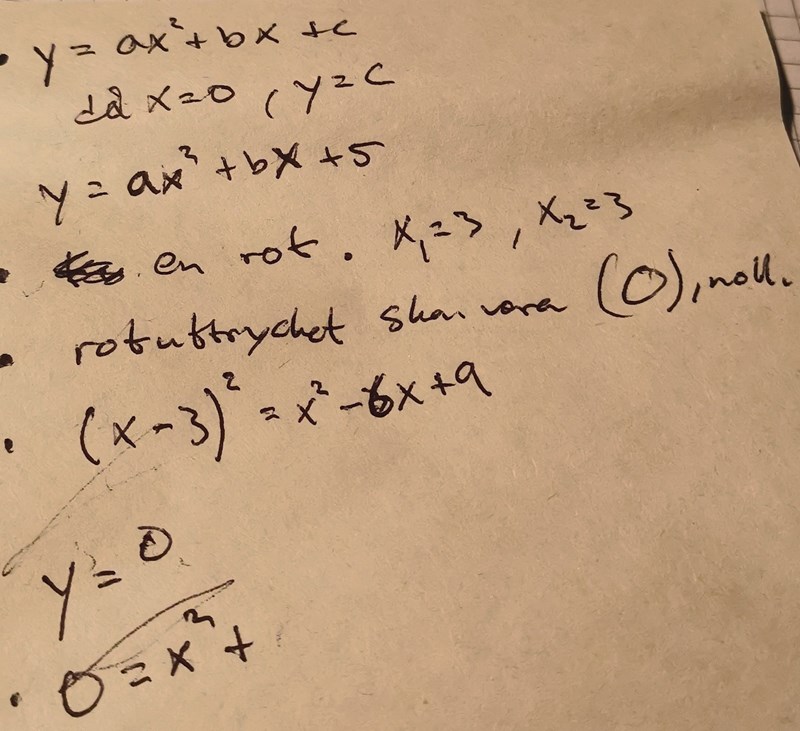 • y = ax² + bx + c
då x=0, y=c
y = ax² + bx + 5
• en rot. x₁=3, x₂=3
• rotuttrycket ska vara (0), noll.
• (x-3)² = x² - 6x + 9
y = 0
• 0 = x² +